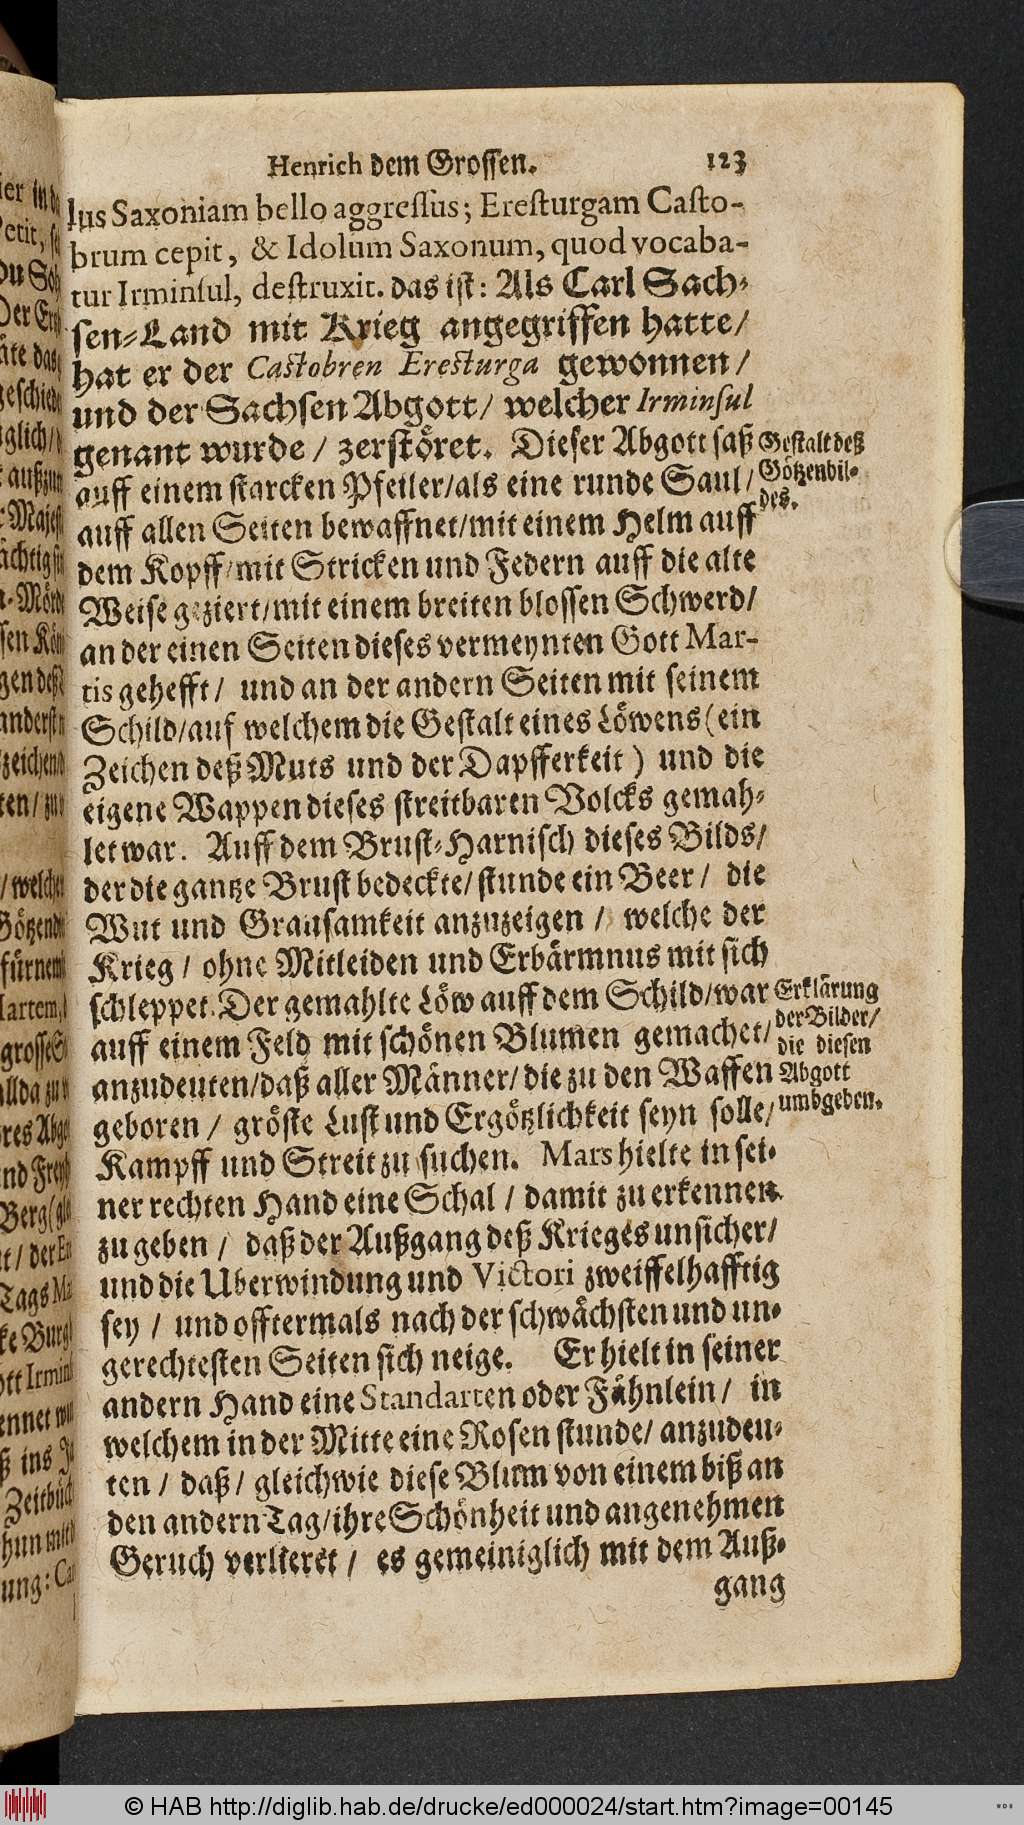 Henrich dem Grossen. 123
lus Saxoniam bello aggressus; Eresturgam Casto-
brum cepit, & Idolum Saxonum, quod vocaba-
tur Irminsul, destruxit. das ist: Als Carl Sach-
sen-Land mit Krieg angegriffen hatte/
hat er der Castobren Eresturga gewonnen/
und der Sachsen Abgott/ welcher Irminsul
genant wurde/ zerstöret. Dieser Abgott saß
auff einem starcken Pfeiler/als eine runde Saul/
auff allen Seiten bewaffnet/mit einem Helm auff
dem Kopff/mit Stricken und Federn auff die alte
Weise geziert/mit einem breiten blossen Schwerd/
an der einen Seiten dieses vermeynten Gott Mar-
tis gehefft/ und an der andern Seiten mit seinem
Schild/auf welchem die Gestalt eines Löwens (ein
Zeichen deß Muts und der Dapfferkeit) und die
eigene Wappen dieses streitbaren Volcks gemah-
let war. Auff dem Brust-Harnisch dieses Bilds/
der die gantze Brust bedeckte/ stunde ein Beer/ die
Wut und Grausamkeit anzuzeigen/ welche der
Krieg/ ohne Mitleiden und Erbärmnus mit sich
schleppet. Der gemahlte Löw auff dem Schild/war
auff einem Feld mit schönen Blumen gemachet/
anzudeuten/daß aller Männer/ die zu den Waffen
geboren/ gröste Lust und Ergötzlichkeit seyn solle/
Kampff und Streit zu suchen. Mars hielte in sei-
ner rechten Hand eine Schal/ damit zu erkennen
zu geben/ daß der Außgang deß Krieges unsicher/
und die Uberwindung und Victori zweiffelhafftig
sey/ und offtermals nach der schwächsten und un-
gerechtesten Seiten sich neige. Er hielt in seiner
andern Hand eine Standarten oder Fähnlein/ in
welchem in der Mitte eine Rosen stunde/ anzudeu-
ten/ daß/ gleichwie diese Blum von einem biß an
den andern Tag/ihre Schönheit und angenehmen
Geruch verlieret/ es gemeiniglich mit dem Auß-
gang
Gestalt deß
Götzenbil-
des.
Erklärung
der Bilder/
die diesen
Abgott
umbgeben.
© HAB http://diglib.hab.de/drucke/ed000024/start.htm?image=00145